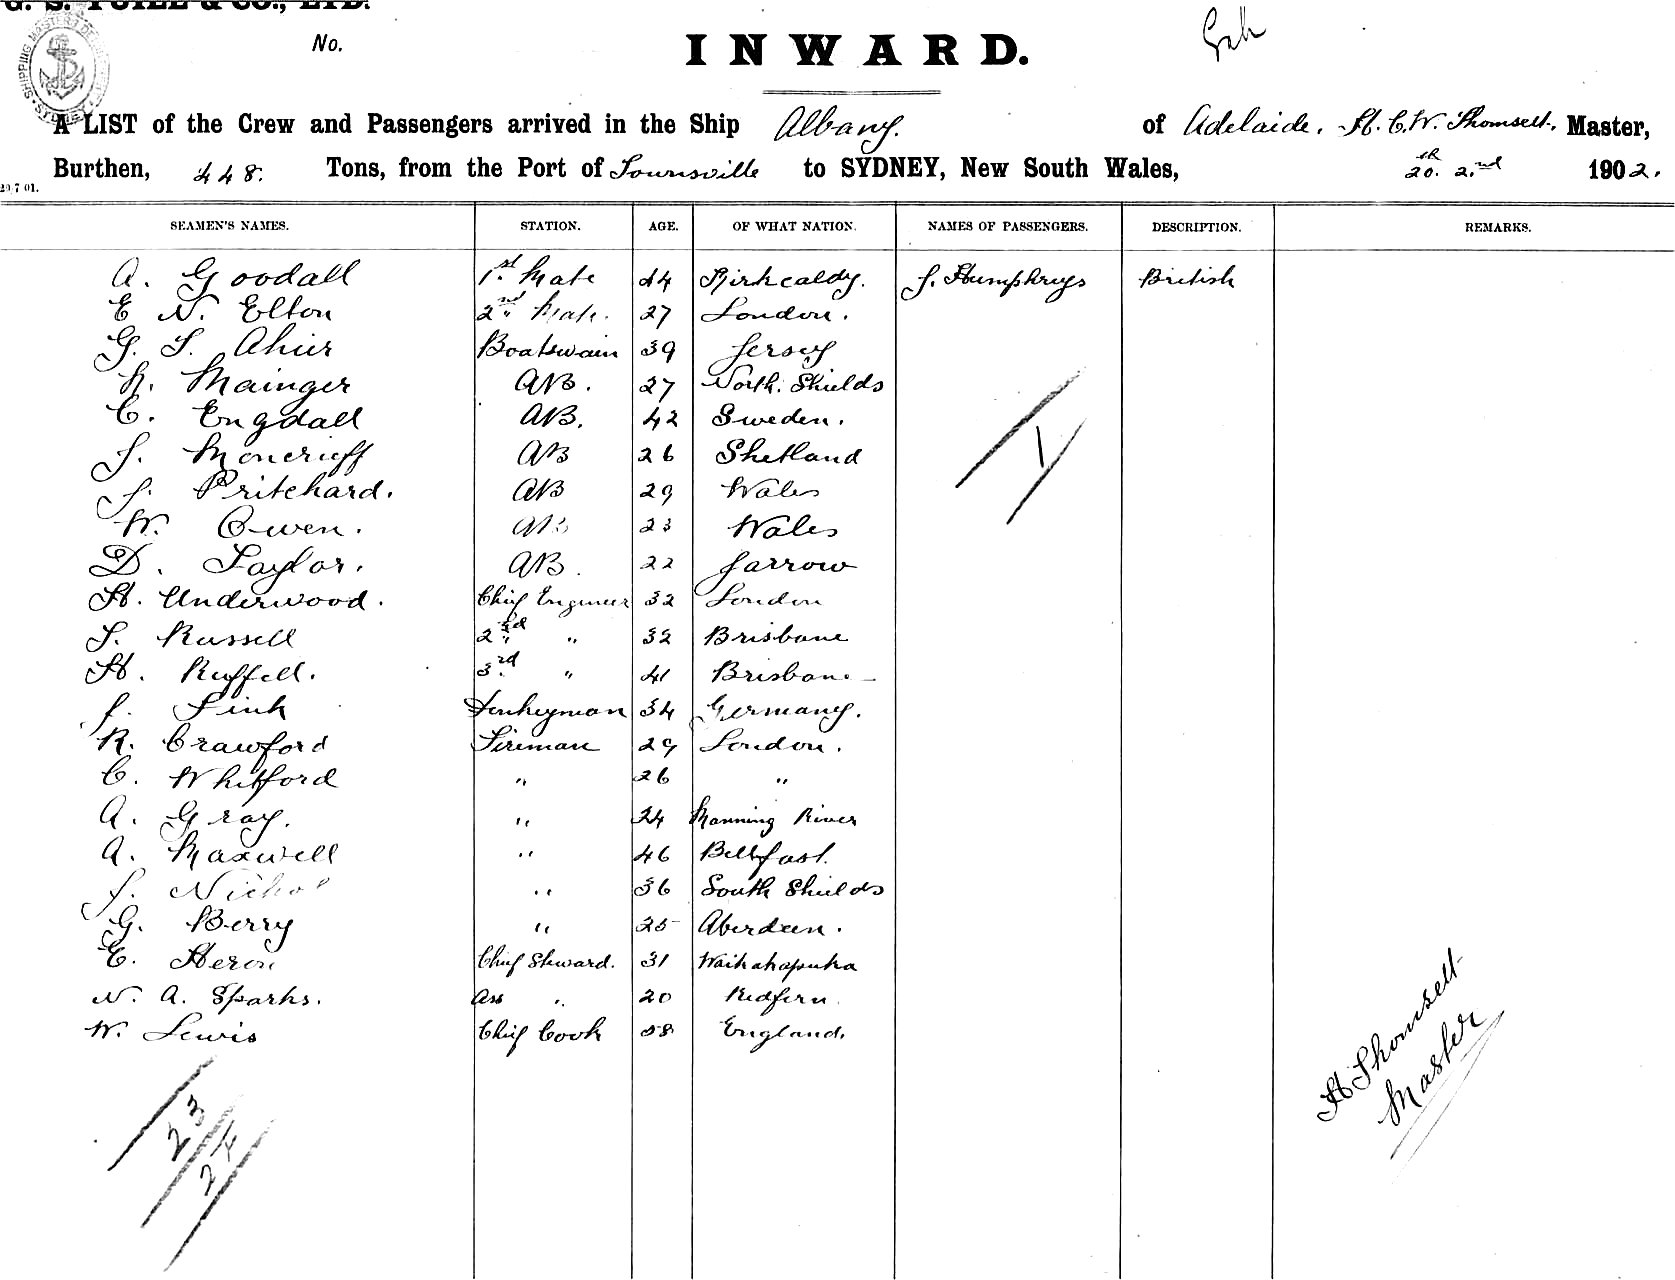 G. S. YUILL & CO., LTD.
SHIPPING MASTER'S DE SYDNEY
No.
INWARD.
A LIST of the Crew and Passengers arrived in the Ship Albany. of Adelaide, H. C. W. Thomsett, Master,
Burthen, 448. Tons, from the Port of Townsville to SYDNEY, New South Wales, 20th 2nd 1902.
20/7 01.
SEAMEN'S NAMES. STATION. AGE. OF WHAT NATION. NAMES OF PASSENGERS. DESCRIPTION. REMARKS.
A. Goodall 1st Mate 44 Kirkcaldy. J. Humphrys British
E N. Elton 2nd Mate. 27 London.
G. T. Ahier Boatswain 39 Jersey
Mainger AB. 27 North. Shields
C. Engdall AB. 42 Sweden.
J. Moncrieff AB 26 Shetland
J. Pritchard. AB 29 Wales
W. Owen. AB 23 Wales
D. Taylor. AB. 22 Jarrow
H. Underwood. Chief Engineer 32 London
T. Russell 2nd " 32 Brisbane
H. Ruffell. 3rd " 41 Brisbane
J. Fink Donkeyman 34 Germany.
R. Crawford Fireman 29 London.
C. Whitford " 26 "
A. Gray. " 24 Manning River
A. Maxwell " 46 Bellfast.
J. Nichol " 36 South Shields
G. Berry " 25 Aberdeen.
E. Heron Chief Steward. 31 Waikahapuka
N. A. Sparks. Ass " 20 Redfern.
W. Lewis Chief Cook 58 England.
1
23
24
H Thomsett
Master